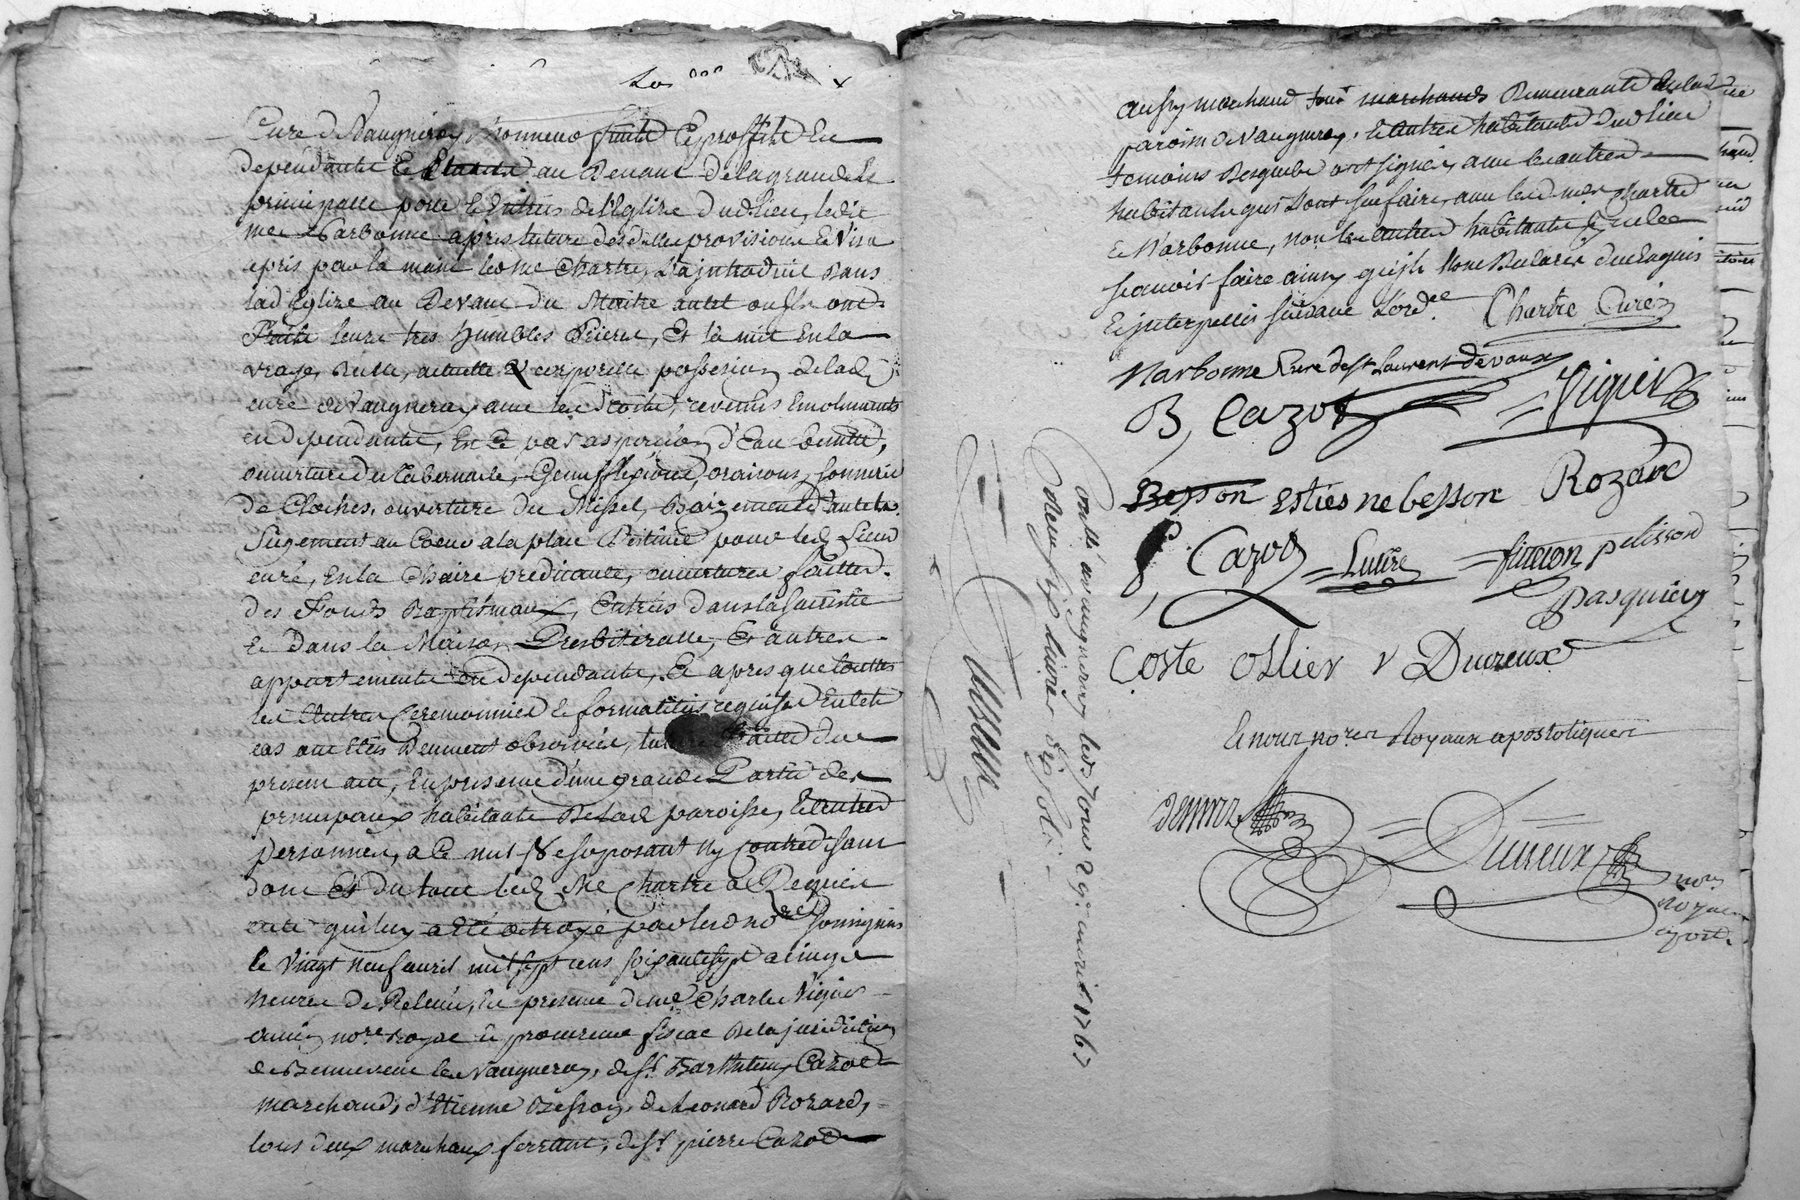 Cure de Vaugneray honneurs fruits Et proffits En
dependants Et Etants au Devant de la grande Et
principalle porte Et Entrée de l'Eglise dud lieu, ledit
me Narbonne apres lecture desdittes provisions Et Visa
a pris par la main led me Chartre, L'a introduit Dans
lad Eglise au Devant du Maitre autel ou Ils ont
Fait leurs tres humbles Prieres, Et l'a mit En la
vraye, Réelle, actuelle & corporelle possession de lad
cure de Vaugneray avec les droits, revenus Emoluments
en dependants, Et Ce par aspersion d'Eau benitte,
ouverture du tabernacle, Genuflexions, oraisons, sonnerie
de Cloches, ouverture du Missel, Baizement d'autel
Siegement au Coeur a la place Destinée pour led Sieur
curé, En la Chaire predicante, ouvertures
des Fonds Baptismaux, Entrées dans la sacristie
Et Dans la Maison Presbiteralle, Et autres
appartements En dependants, Et apres que touttes
les Autres Ceremonnies Et formalités requises En tel
cas ont Etés Deument observées, lecture faitte du
present acte, En presence d'une grande Partie des
principaux habitants De lad paroisse, Et autres
personnes, a Ce nul s'Est oposant ny contredisant
dont Et du tout led Me Chartre a Requis
acte qui luy a Eté octroyé par lesd nores soussignés
le Vingt neuf avril mil sept cens soixante sept a cinq
heures de Relevée, En presence de me Charles Vigier
ancien nore royal Et procureur fiscal De la juridiction
de Vaugneray, de sr Barthelemy Cazot
marchand, d'Etienne Besson, de Leonard Rozard,
tous deux marechaux ferrant, de sr pierre Cazot
aussy marchand tous marchands Demeurants En lad
paroisse de Vaugneray, Et autres habitants dud lieu
temoins Lesquels ont signés avec les autres
habitants qui l'ont sçu faire, avec lesd mes Chartre
Et Narbonne, non les autres habitants pour ne le
sçavoir faire ainsy qu'ils l'ont Declaré de ce Enquis
Et interpellés suivant l'ordce Chartre Curé
Narbonne Curé de St Laurent de vaux
B, Cazot Vigier
Besson Estiesne besson Rozard
P, Cazot pelisson
pasquier
Coste Ollier Ducreux
Et nous nores Royaux apostoliques
Ducreux
nore
royal
apost.
Conllé a vaugneray led Jour 29e avril 1767